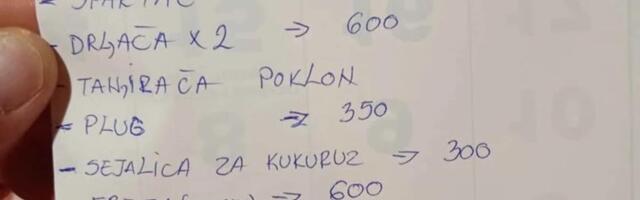 - DRLJAČA X 2 → 600
- TANJIRAČA POKLON
- PLUG → 350
- SEJALICA ZA KUKURUZ → 300
→ 600